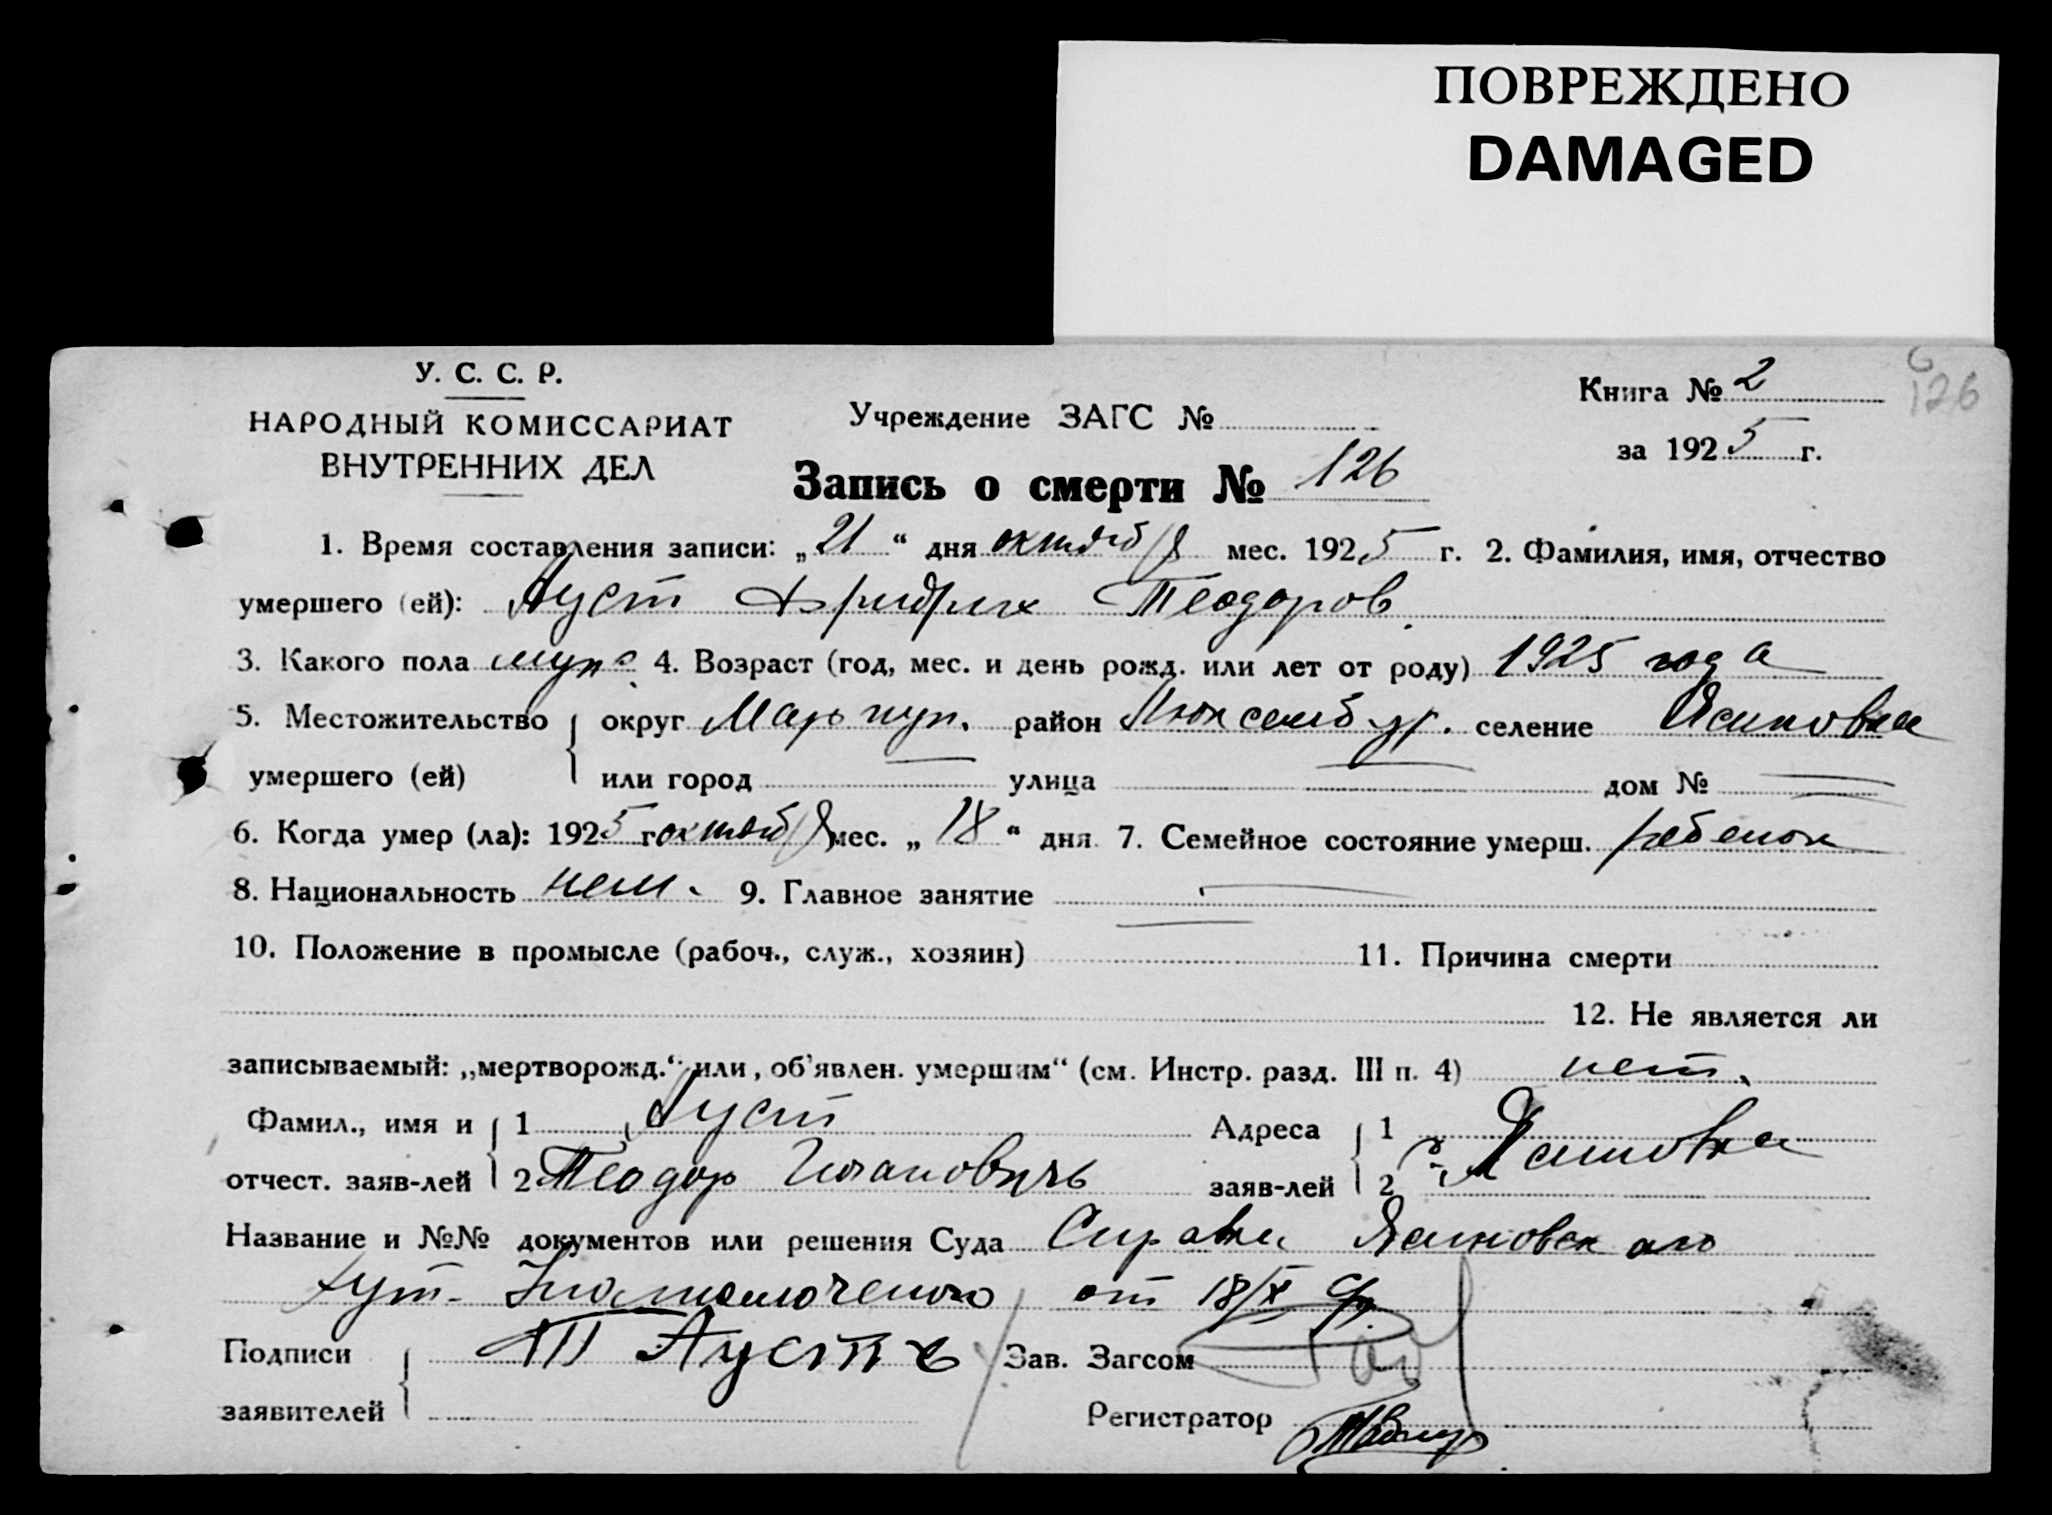 ПОВРЕЖДЕНО
DAMAGED
У. С. С. Р.
НАРОДНЫЙ КОМИССАРИАТ
ВНУТРЕННИХ ДЕЛ
Учреждение ЗАГС №
Книга № 2
126
за 1925 г.
Запись о смерти № 126
1. Время составления записи: „21“ дня октября мес. 1925 г. 2. Фамилия, имя, отчество
умершего (ей): Ауст Фридрих Теодоров.
3. Какого пола муж. 4. Возраст (год, мес. и день рожд. или лет от роду) 1925 года
5. Местожительство округ Мариуп. район Люксембург. селение Ясиновка
умершего (ей) или город улица дом №
6. Когда умер (ла): 1925 г октября мес. „18“ дня 7. Семейное состояние умерш. ребенок
8. Национальность нем. 9. Главное занятие
10. Положение в промысле (рабоч., служ., хозяин) 11. Причина смерти
12. Не является ли
записываемый: „мертворожд.“ или „об'явлен. умершим“ (см. Инстр. разд. III п. 4) нет.
Фамил., имя и 1 Ауст Адреса 1
отчест. заяв-лей 2 Теодор Иванович заяв-лей 2 с. Ясиновка
Название и №№ документов или решения Суда Справка Ясиновского
хут. от 18/X
Подписи Т Аустъ Зав. Загсом
заявителей Регистратор